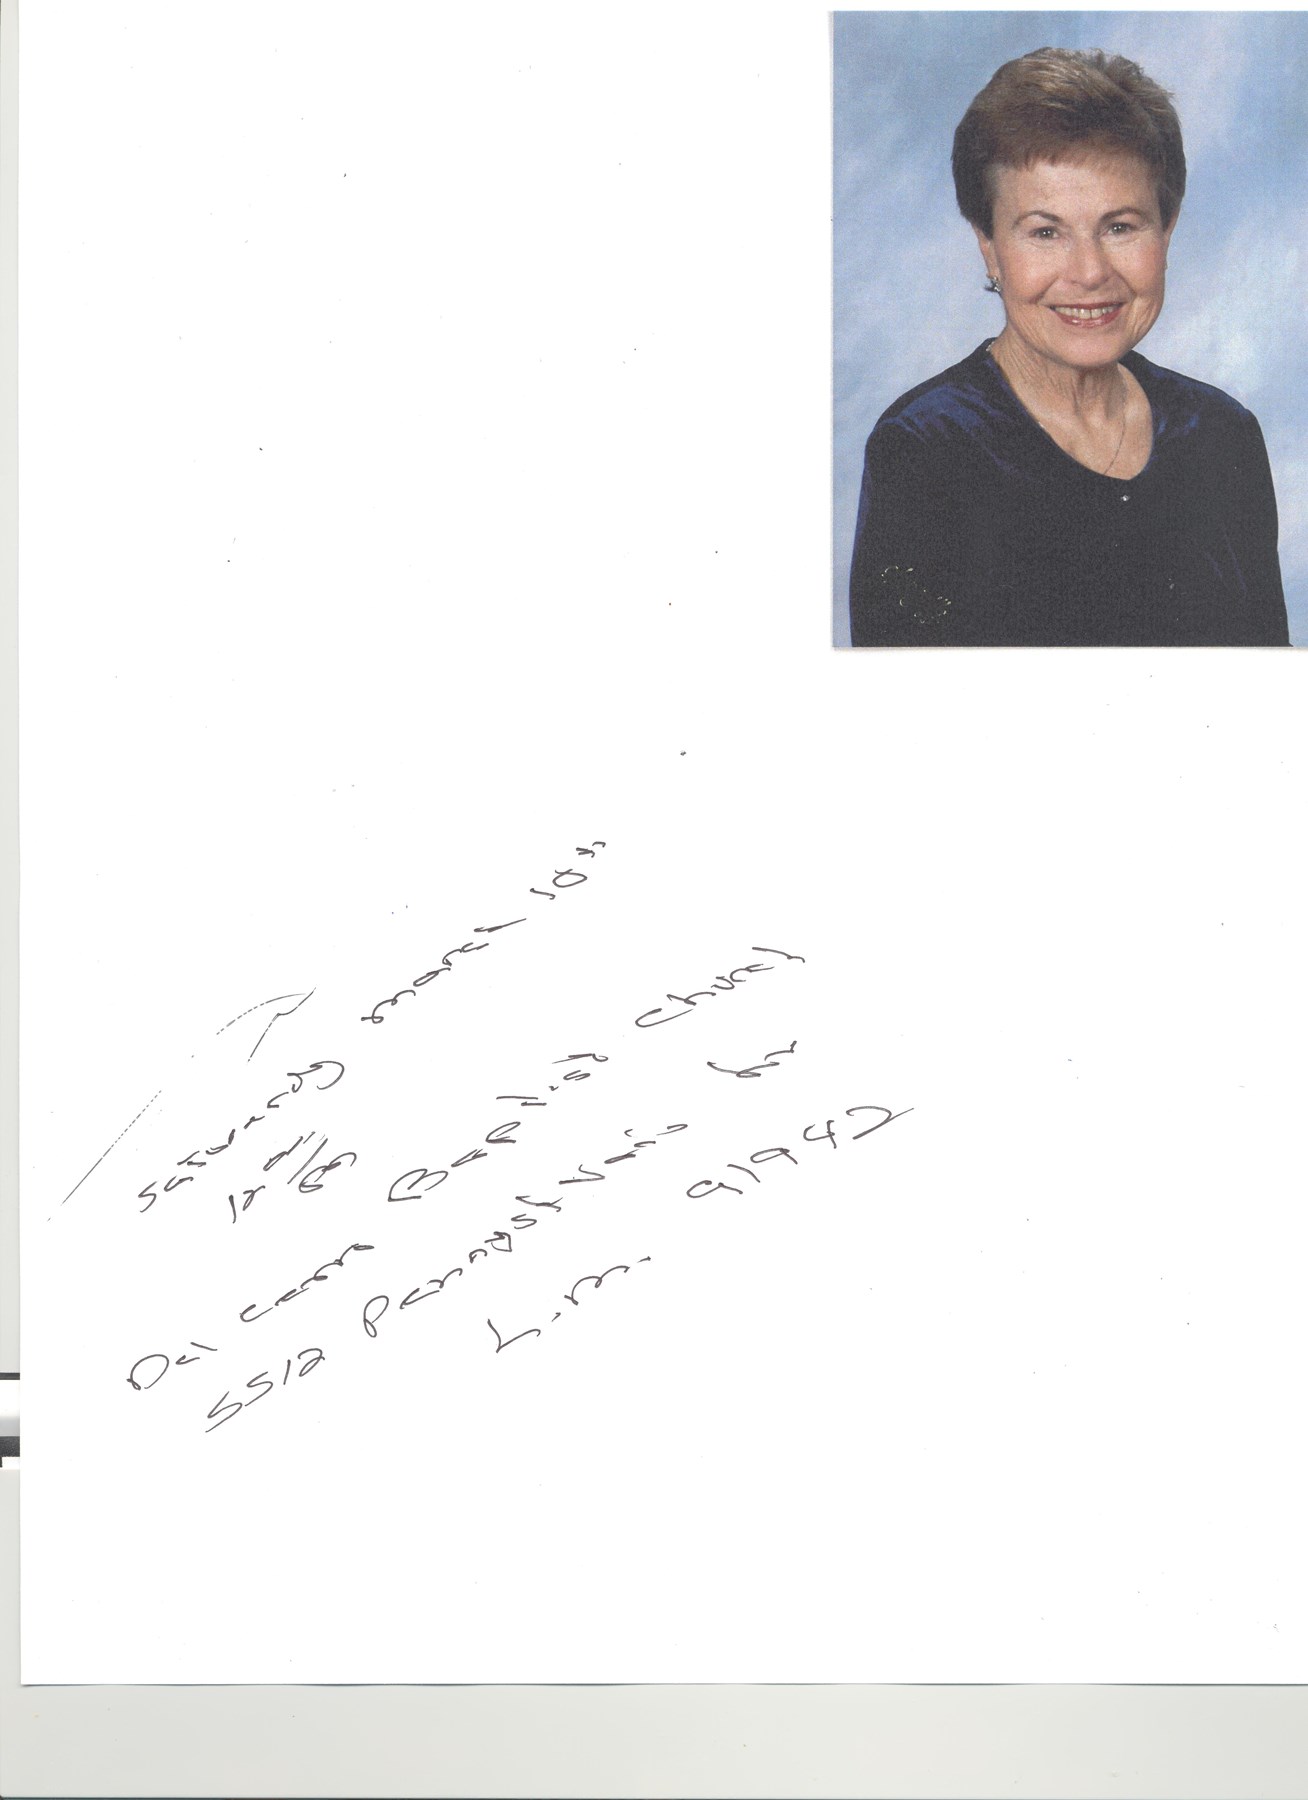 Saturday March 10th
12
Del Cerro Baptist Church
5512 Pennsylvania Ln
L.M. 91942